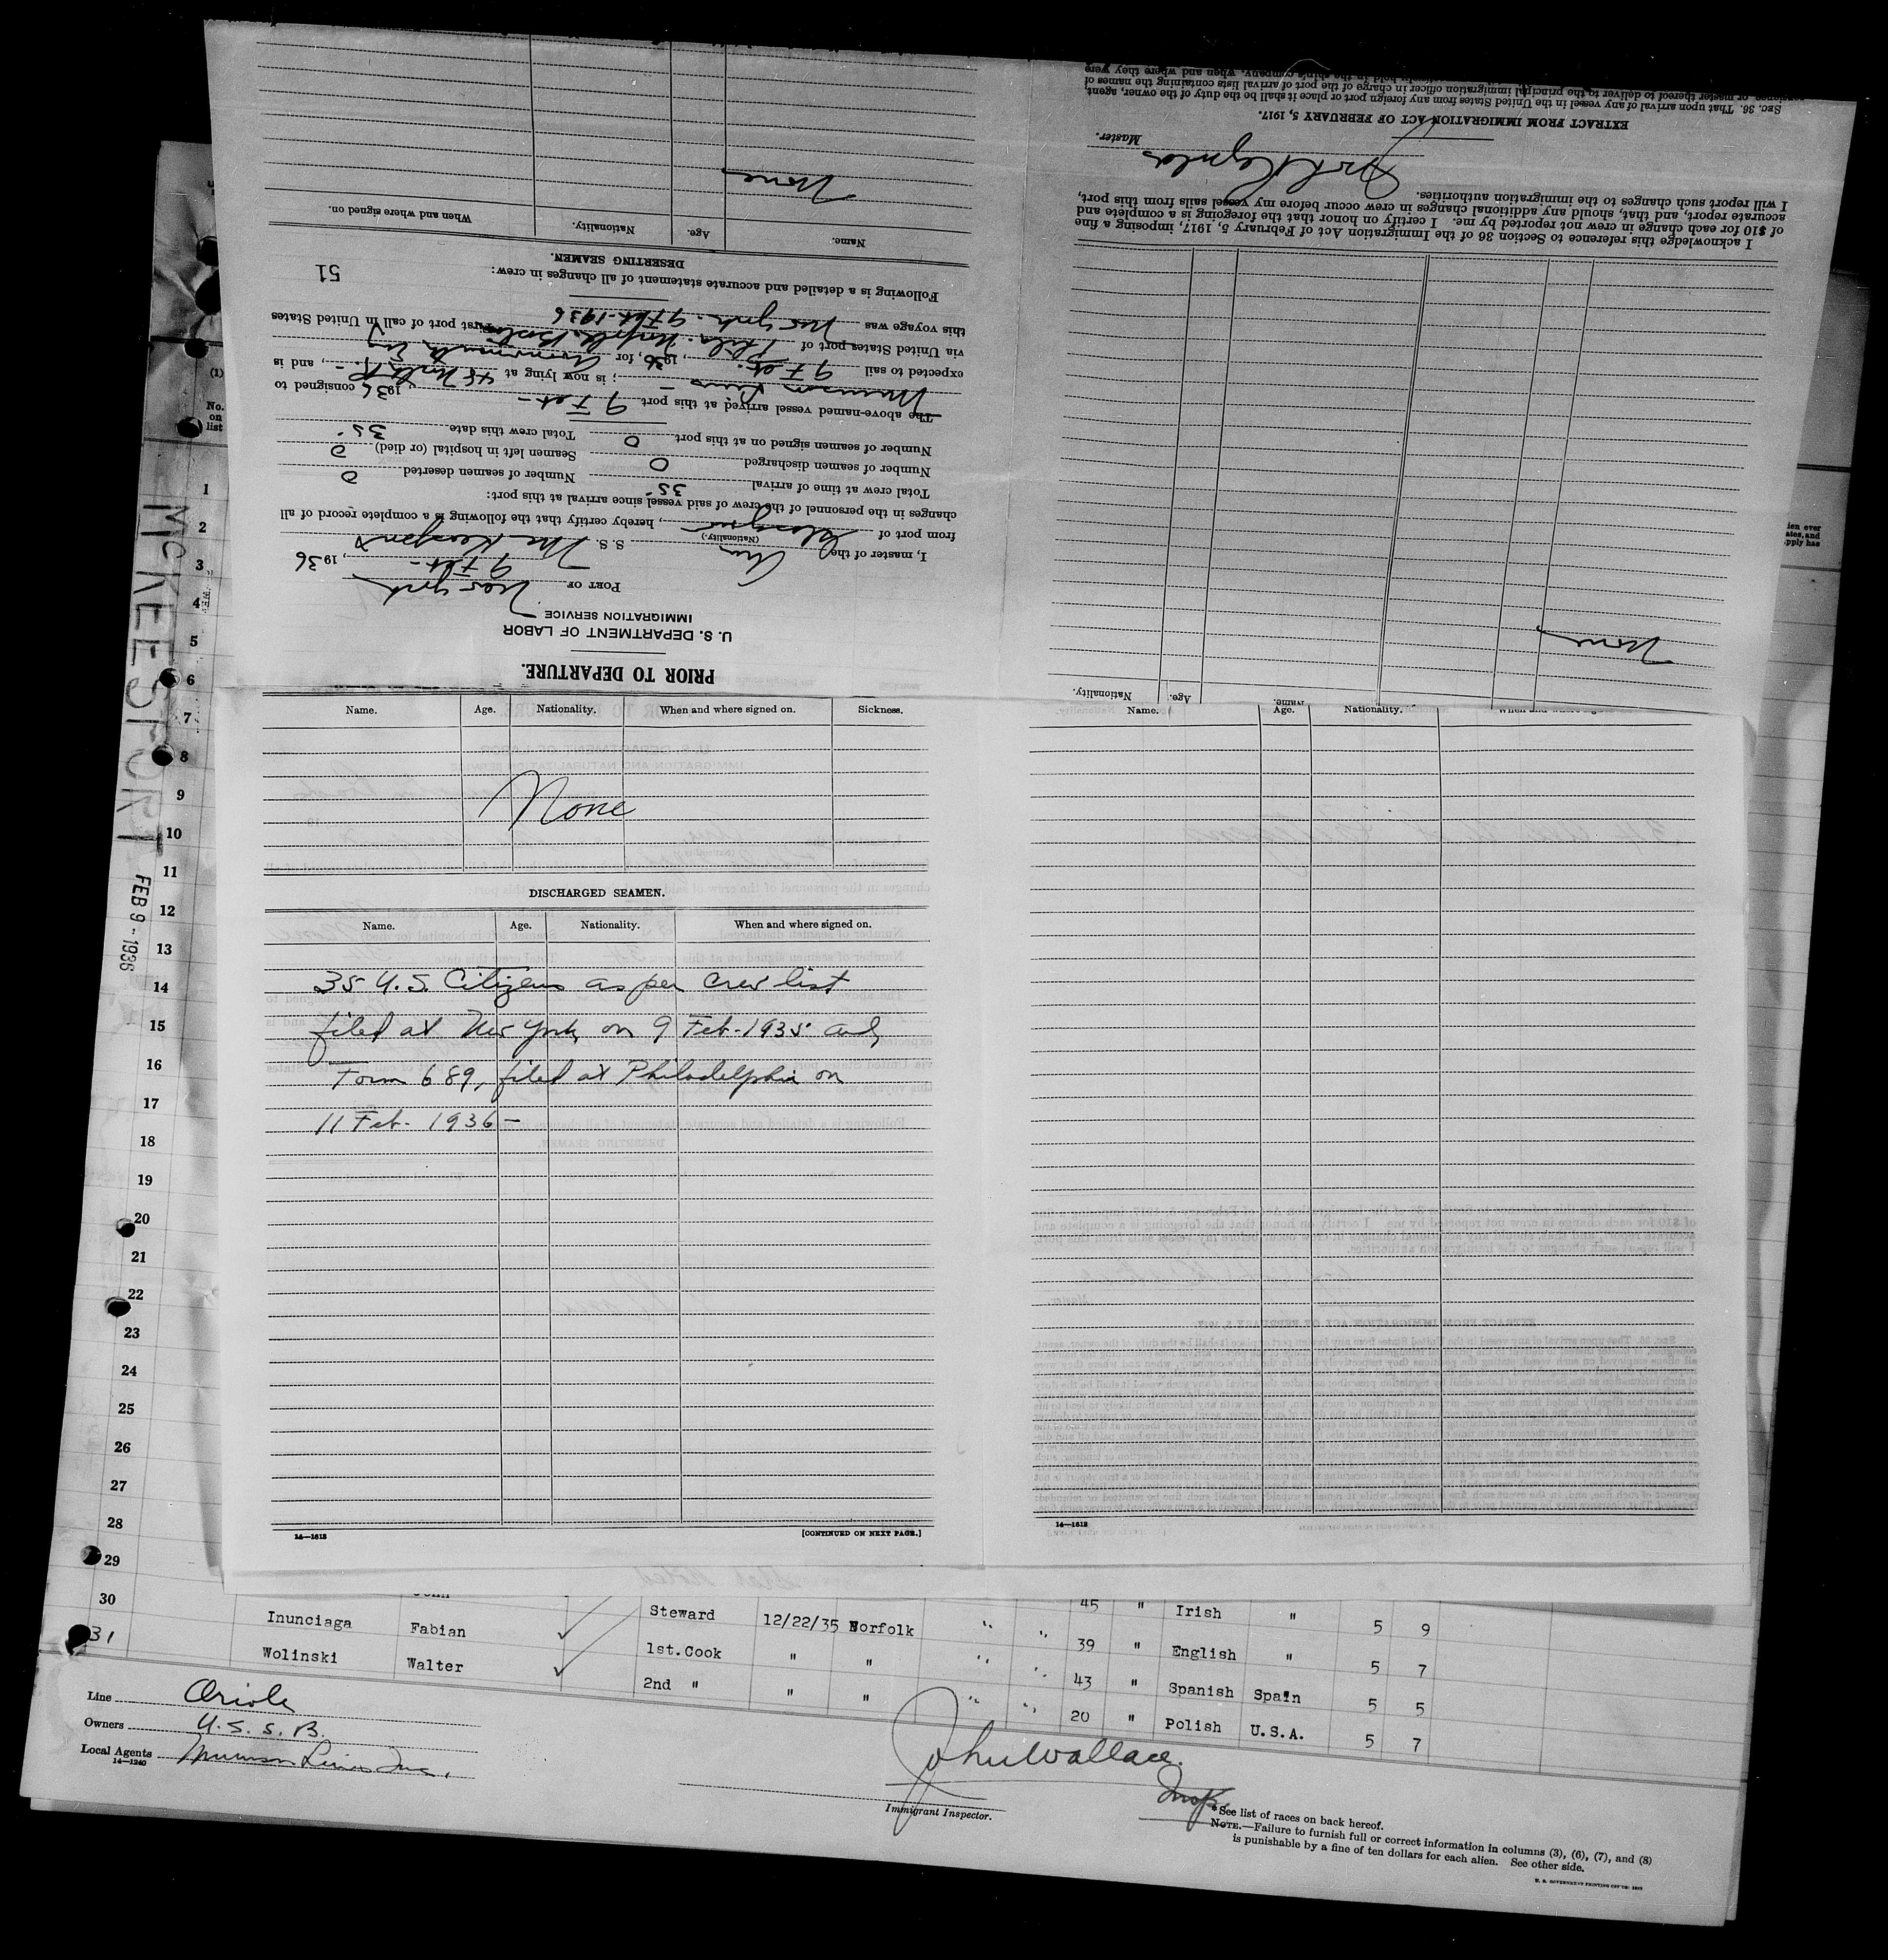 PRIOR TO DEPARTURE.
U. S. DEPARTMENT OF LABOR
IMMIGRATION SERVICE
PORT OF New York
9 Feb - , 1936
I, master of the Am S. S. McKeesport
(Nationality.)
from port of Glasgow, hereby certify that the following is a complete record of all
changes in the personnel of the crew of said vessel since arrival at this port:
Total crew at time of arrival 35 Number of seamen deserted 0
Number of seamen discharged 0 Seamen left in hospital (or died) 0
Number of seamen signed on at this port 0 Total crew this date 35
The above-named vessel arrived at this port 9 Feb - , 1936 consigned to
Munson Line - ; is now lying at 48 -, and is
expected to sail 9 Feb. , 1936, for
via United States port of Phila. Norfolk, First port of call in United States
this voyage was New York. 9 Feb. 1936
Following is a detailed and accurate statement of all changes in crew: 51
DESERTING SEAMEN.
Name. Age. Nationality. When and where signed on.
None
Name. Age. Nationality.
None
I acknowledge this reference to Section 36 of the Immigration Act of February 5, 1917, imposing a fine
of $10 for each change in crew not reported by me. I certify on honor that the foregoing is a complete and
accurate report, and that, should any additional changes in crew occur before my vessel sails from this port,
I will report such changes to the immigration authorities.
Reynolds
Master.
EXTRACT FROM IMMIGRATION ACT OF FEBRUARY 5, 1917.
SEC. 36. That upon arrival of any vessel in the United States from any foreign port or place it shall be the duty of the owner, agent,
or master thereof to deliver to the principal immigration officer in charge of the port of arrival lists containing the names of
company, when and where they were
Name. Age. Nationality. When and where signed on. Sickness.
None
DISCHARGED SEAMEN.
Name. Age. Nationality. When and where signed on.
35 U. S. Citizens as per crew list
filed at New York on 9 Feb-1935 and
Form 689, filed at Philadelphia on
11 Feb- 1936 -
14—1613 [CONTINUED ON NEXT PAGE.]
Name. Age. Nationality.
14—1613
(1)
No.
on
list
1
2
3
4
5
6
7
8
9
10
11
12
13
14
15
16
17
18
19
20
21
22
23
24
25
26
27
28
29
30
31
MCKEESPORT
FEB 9 - 1936
John
Steward 12/22/35 Norfolk " " 45 " Irish " 5 9
Inunciaga Fabian 1st.Cook " " " " 39 " English " 5 7
Wolinski Walter 2nd " " " " " 43 " Spanish Spain 5 5
20 " Polish U.S.A. 5 7
Line Oriole
Owners U. S. S. B.
Local Agents Munson Line Inc.
14—1240
John Wallace.
Insp.
Immigrant Inspector.
*See list of races on back hereof.
NOTE.—Failure to furnish full or correct information in columns (3), (6), (7), and (8)
is punishable by a fine of ten dollars for each alien. See other side.